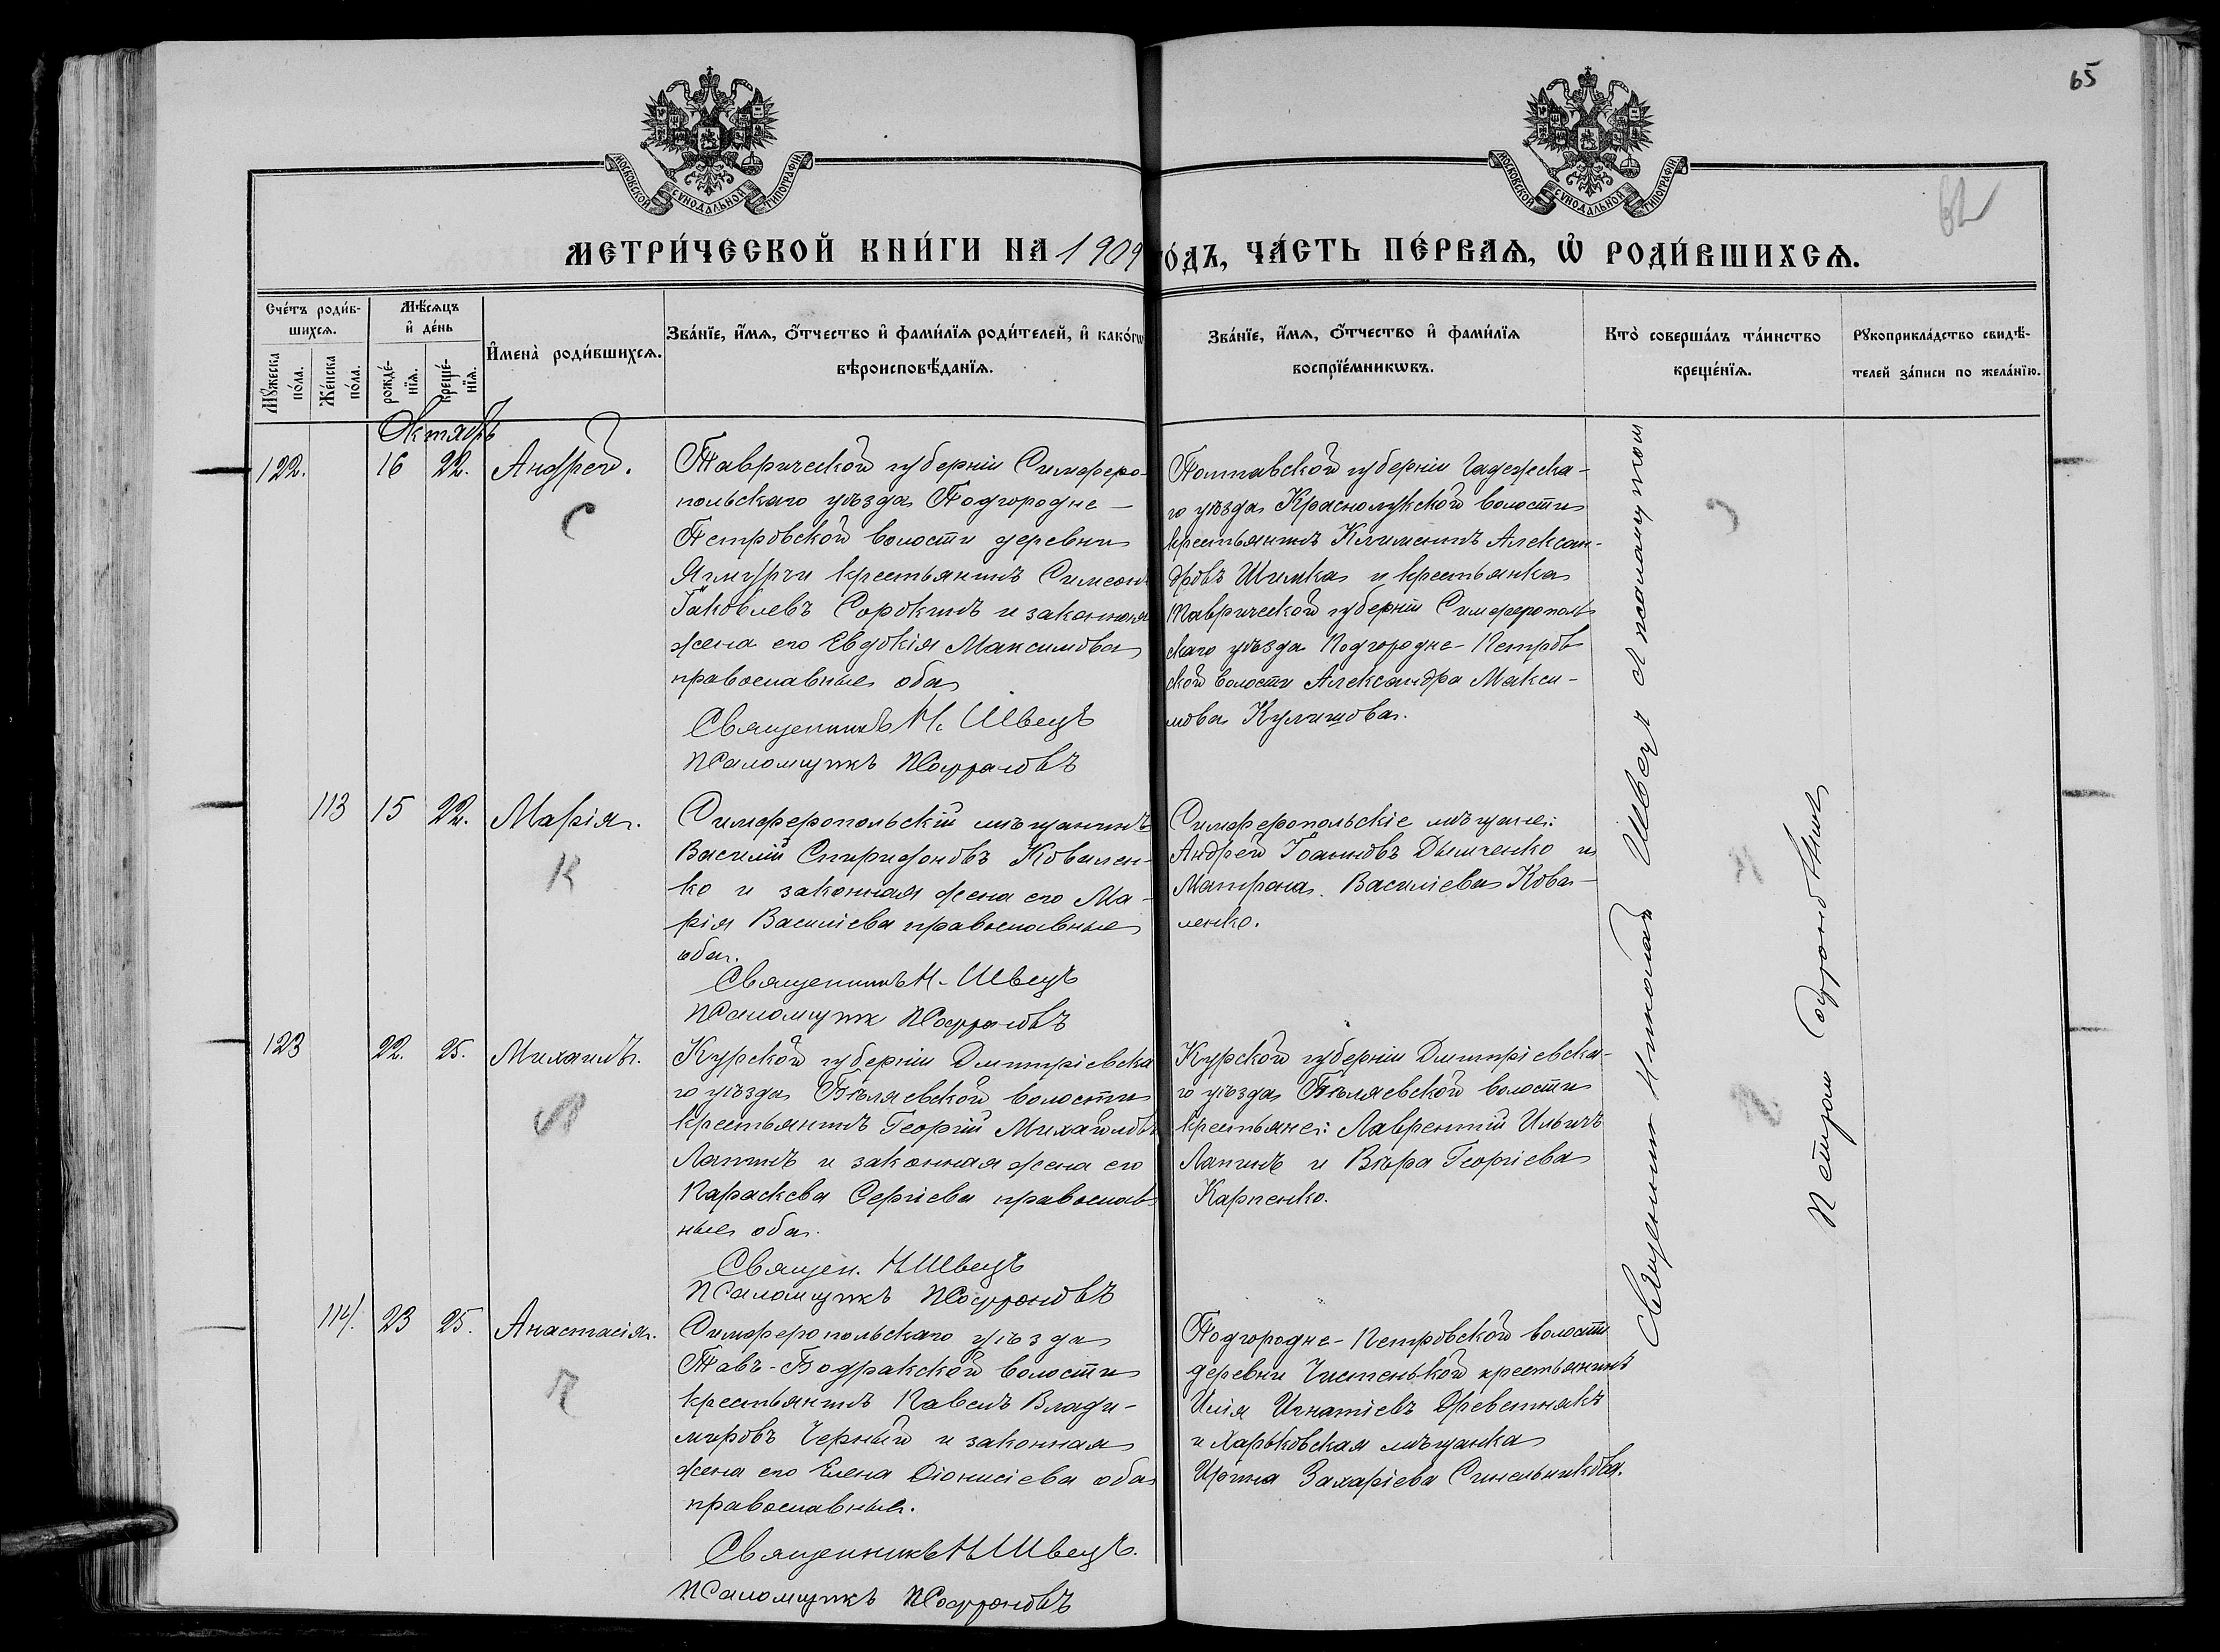 65
62
МОСКОВСКОЙ СѴНОДАЛЬНОЙ ТИПОГРАФІИ
МОСКОВСКОЙ СѴНОДАЛЬНОЙ ТИПОГРАФІИ
МЕТРИ́ЧЕСКОЙ КНИ́ГИ НА 1909 го́дъ, ЧА́СТЬ ПЕ́РВАѦ, Ѽ РОДИ́ВШИХСѦ.
Сче́тъ роди́в-
шихсѧ.
Мꙋ́жеска
по́ла.
Же́нска
по́ла.
Мѣ́сѧцъ
и҆ де́нь
рожде́-
нїѧ.
креще́-
нїѧ.
И҆мена̀ роди́вшихсѧ.
Зва́нїе, и҆́мѧ, ѻ҆́тчество и҆ фами́лїѧ роди́телей, и҆ како́гѡ
вѣроисповѣ́данїѧ.
Зва́нїе, и҆́мѧ, ѻ҆́тчество и҆ фами́лїѧ
воспрїе́мникѡвъ.
Кто̀ соверша́лъ та́инство
креще́нїѧ.
Рꙋкоприкла́дство свидѣ́-
телей за́писи по жела́нїю.
Октябрь
122. 16 22. Андрей.
С
Таврической губерніи Симферо-
польскаго уѣзда Подгородне-
Петровской волости деревни
Ягмурчи крестьянинъ Симеонъ
Іаковлевъ Сорокинъ и законная
жена его Евдокія Максимова
православные оба
Священникъ Н. Швецъ
Псаломщикъ П Софроновъ
Полтавской губерніи Гадяческа-
го уѣзда Краснолукской волости
крестьянинъ Климентъ Алексан-
дровъ Шимка и крестьянка
Таврической губерніи Симферополь
скаго уѣзда Подгородне-Петров
ской волости Александра Макси-
мова Кулишова.
113 15 22. Марія.
К
Симферопольскій мѣщанинъ
Василій Спиридоновъ Ковален-
ко и законная жена его Ма-
рія Василіева православные
оба.
Священникъ Н. Швецъ
Псаломщик П Софроновъ
Симферопольскіе мѣщане:
Андрей Іоанновъ Дымченко и
Матрона Василіева Кова-
ленко.
123 22. 25. Михаилъ.
Л
Курской губерніи Дмитріевска
го уѣзда Бѣляевской волости
крестьянинъ Георгій Михайловъ
Лапинъ и законная жена его
Параскева Сергіева православ-
ные оба.
Священ. Н Швецъ
Псаломщикъ П Софроновъ
Курской губерніи Дмитріевска-
го уѣзда Бѣляевской волости
крестьяне: Лаврентій Ильичъ
Лапинъ и Вѣра Георгіева
Карпенко.
114. 23 25. Анастасія.
Симферопольскаго уѣзда
Тавъ-Бодракской волости
крестьянинъ Павелъ Влади-
міровъ Черный и законная
жена его Елена Діонисіева оба
православные.
Священникъ Н Швецъ.
Псаломщикъ П Софроновъ
Подгородне-Петровской волости
деревни Чистенькой крестьянинъ
Илія Игнатіевъ Древетнякъ
и Харьковская мѣщанка
Ирина Захаріева Синельникова.
Священник Николай Швец с псаломщиком
Петром Софроновым